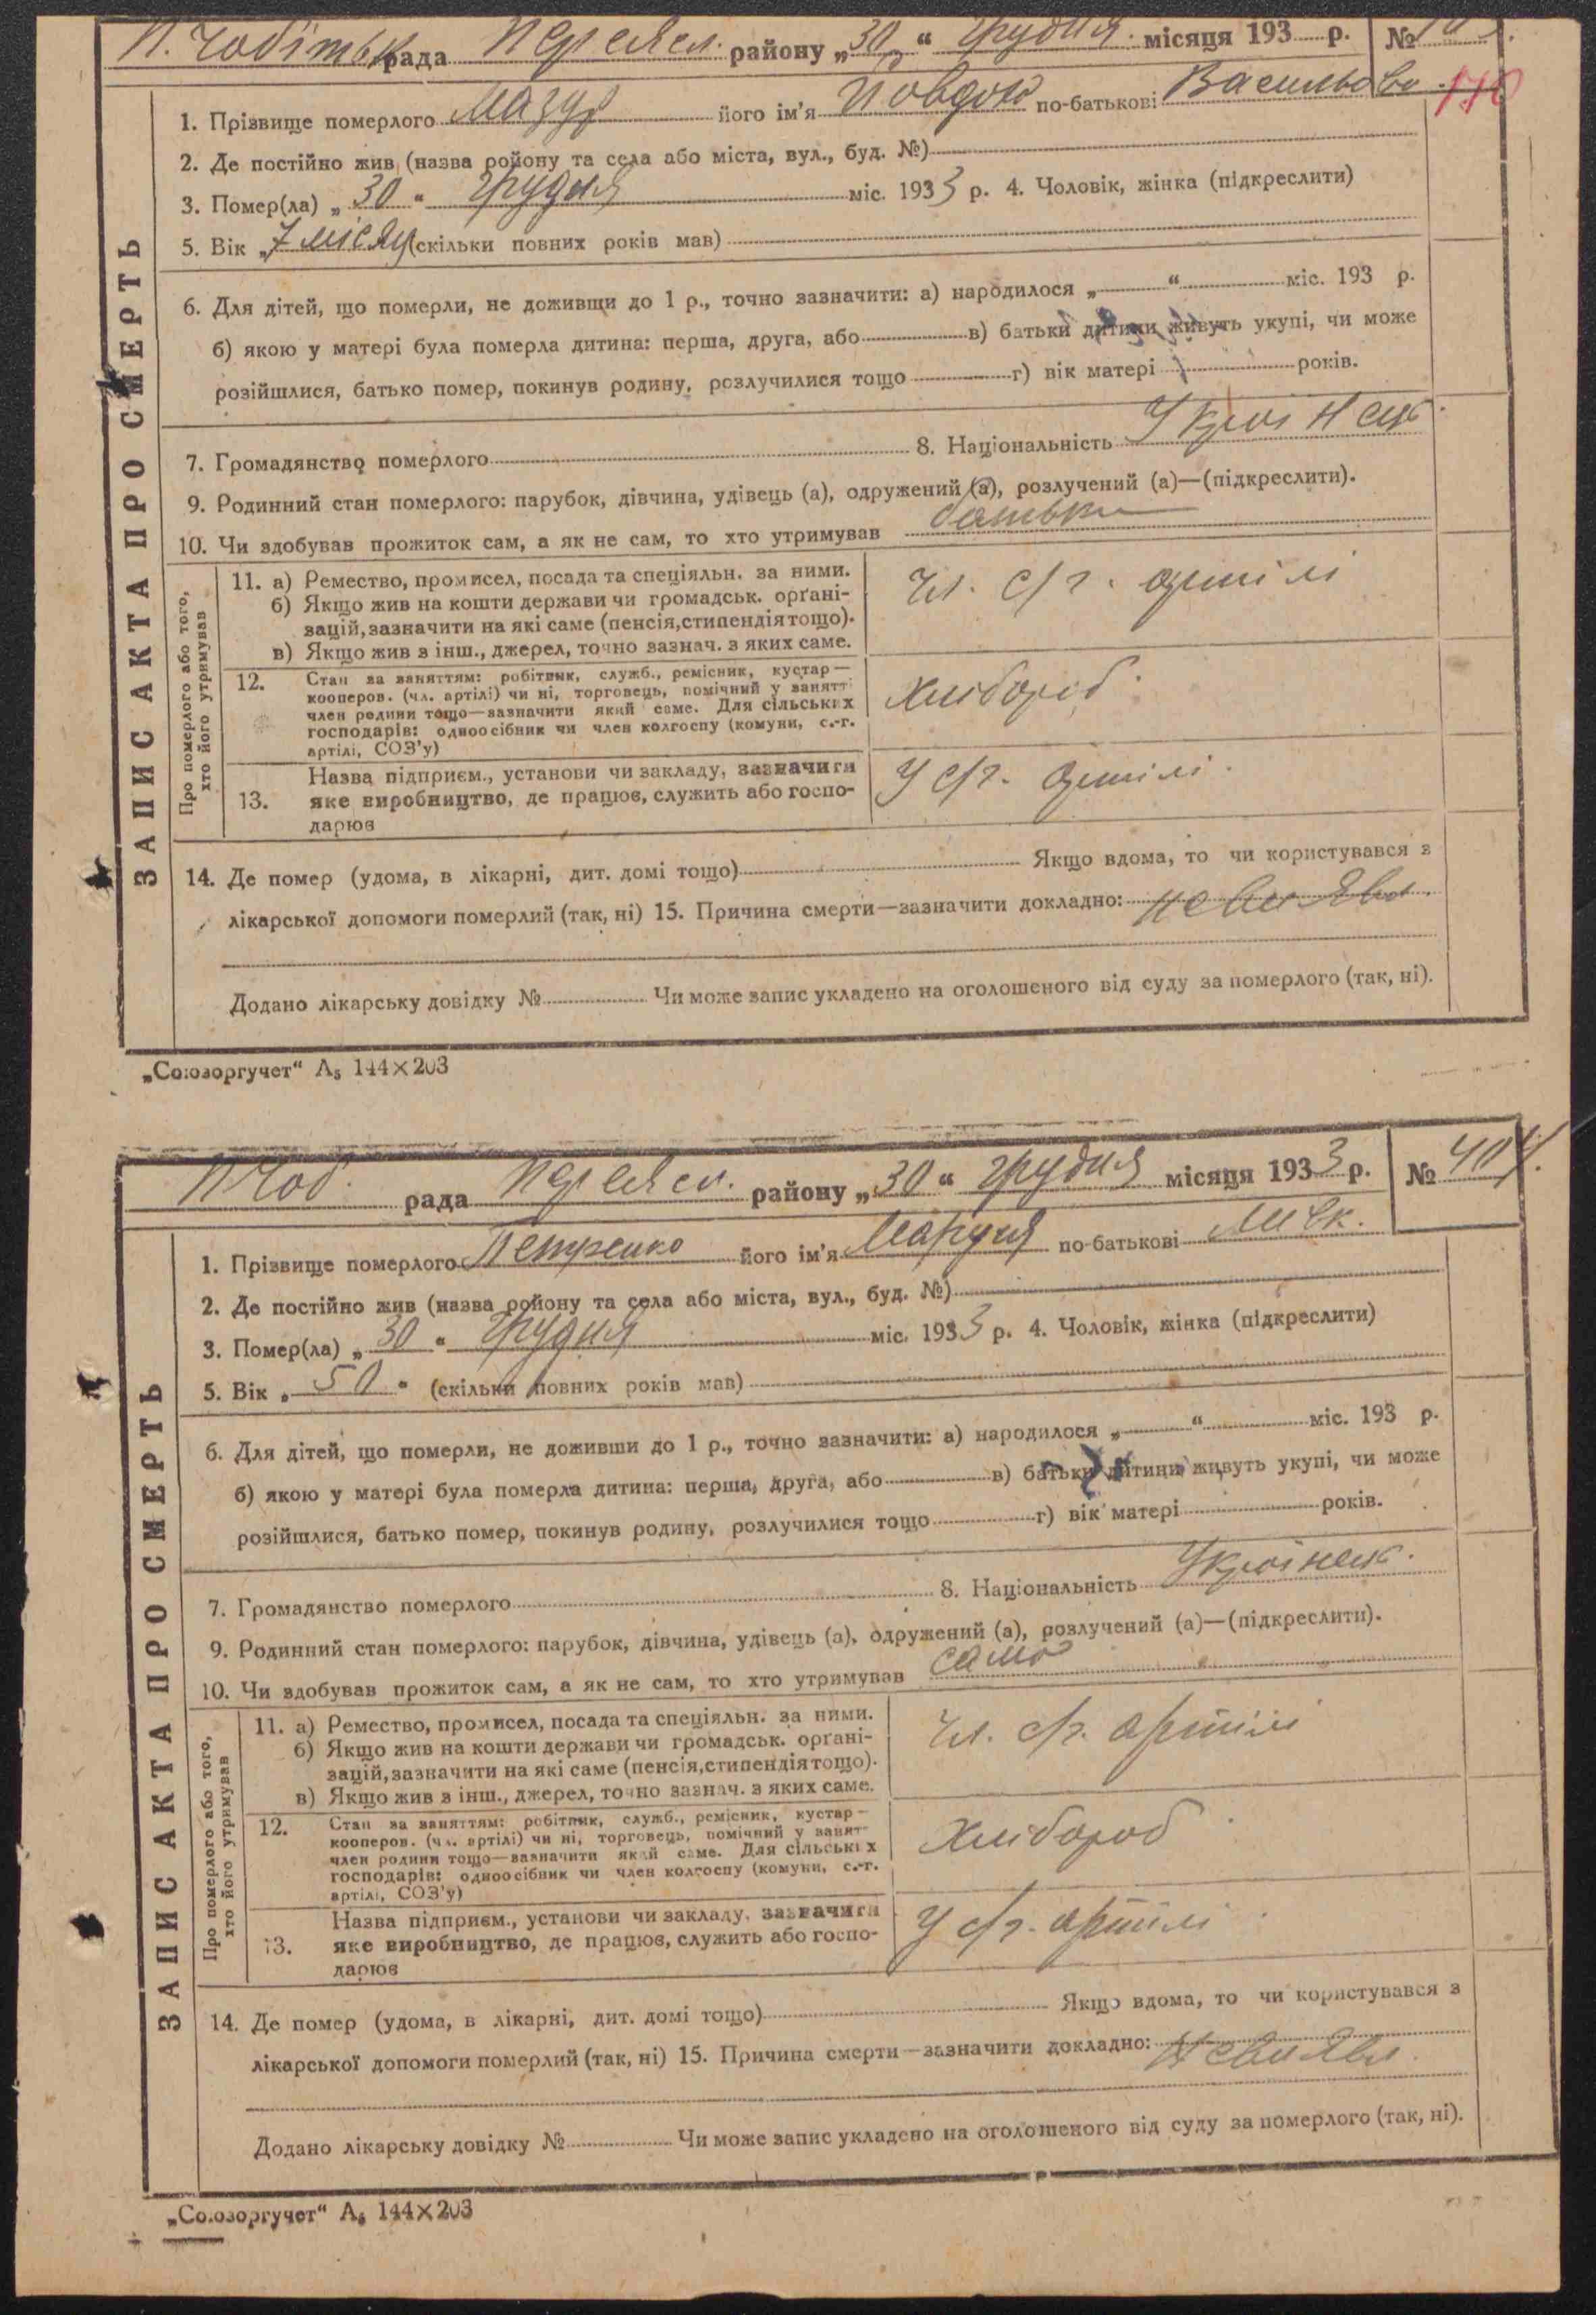 П. Чобітьк рада Переясл. району „30“ грудня. місяця 193 р. №
170
1. Прізвище померлого Мазур його ім'я Йовдок по-батькові Васильова
2. Де постійно жив (назва ройону та села або міста, вул., буд. №)
3. Помер(ла) „30“ грудня міс. 1933 р. 4. Чоловік, жінка (підкреслити)
5. Вік „7 місяц (скільки повних років мав)
6. Для дітей, що померли, не доживши до 1 р., точно зазначити: а) народилося „ “ міс. 193 р.
б) якою у матері була померла дитина: перша, друга, або в) батьки дитини живуть укупі, чи може
розійшлися, батько помер, покинув родину, розлучилися тощо г) вік матері років.
7. Громадянство померлого 8. Національність Українець.
9. Родинний стан померлого: парубок, дівчина, удівець (а), одружений (а), розлучений (а)—(підкреслити).
10. Чи здобував прожиток сам, а як не сам, то хто утримував батьки
ЗАПИС АКТА ПРО СМЕРТЬ
Про померлого або того,
хто його утримував
11. а) Ремество, промисел, посада та спеціяльн. за ними.
б) Якщо жив на кошти держави чи громадськ. орґані-
зацій, зазначити на які саме (пенсія, стипендія тощо).
в) Якщо жив з інш., джерел, точно зазнач. з яких саме.
Чл. с/г. артілі
12. Стан за заняттям: робітник, служб., ремісник, кустар—
кооперов. (чл. артілі) чи ні, торговець, помічний у занятт
член родини тощо—зазначити який саме. Для сільських
господарів: одноосібник чи член колгоспу (комуни, с.-г.
артілі, СОЗ'у)
Хлібороб.
13. Назва підприєм., установи чи закладу, зазначити
яке виробництво, де працює, служить або госпо-
дарює
У с/г. артілі.
14. Де помер (удома, в лікарні, дит. домі тощо) Якщо вдома, то чи користувався з
лікарської допомоги померлий (так, ні) 15. Причина смерти—зазначити докладно: невиявл.
Додано лікарську довідку № Чи може запис укладено на оголошеного від суду за померлого (так, ні).
„Союзоргучет“ А₅ 144×203
П Чоб. рада Переясл. району „30“ грудня місяця 1933 р. № 404.
1. Прізвище померлого Петренко його ім'я Маруся по-батькові
2. Де постійно жив (назва ройону та села або міста, вул., буд. №)
3. Помер(ла) „30“ грудня міс. 1933 р. 4. Чоловік, жінка (підкреслити)
5. Вік „50“ (скільки повних років мав)
6. Для дітей, що померли, не доживши до 1 р., точно зазначити: а) народилося „ “ міс. 193 р.
б) якою у матері була померла дитина: перша, друга, або в) батьки дитини живуть укупі, чи може
розійшлися, батько помер, покинув родину, розлучилися тощо г) вік матері років.
7. Громадянство померлого 8. Національність Українськ.
9. Родинний стан померлого: парубок, дівчина, удівець (а), одружений (а), розлучений (а)—(підкреслити).
10. Чи здобував прожиток сам, а як не сам, то хто утримував само
ЗАПИС АКТА ПРО СМЕРТЬ
Про померлого або того,
хто його утримував
11. а) Ремество, промисел, посада та спеціяльн. за ними.
б) Якщо жив на кошти держави чи громадськ. орґані-
зацій, зазначити на які саме (пенсія, стипендія тощо).
в) Якщо жив з інш., джерел, точно зазнач. з яких саме.
Чл. с/г. артілі
12. Стан за заняттям: робітник, служб., ремісник, кустар—
кооперов. (чл. артілі) чи ні, торговець, помічний у занят
член родини тощо—зазначити який саме. Для сільських
господарів: одноосібник чи член колгоспу (комуни, с.-г.
артілі, СОЗ'у)
Хлібороб
13. Назва підприєм., установи чи закладу, зазначити
яке виробництво, де працює, служить або госпо-
дарює
У с/г. артілі
14. Де помер (удома, в лікарні, дит. домі тощо) Якщо вдома, то чи користувався з
лікарської допомоги померлий (так, ні) 15. Причина смерти—зазначити докладно: невиявл.
Додано лікарську довідку № Чи може запис укладено на оголошеного від суду за померлого (так, ні).
„Союзоргучет“ А₅ 144×203